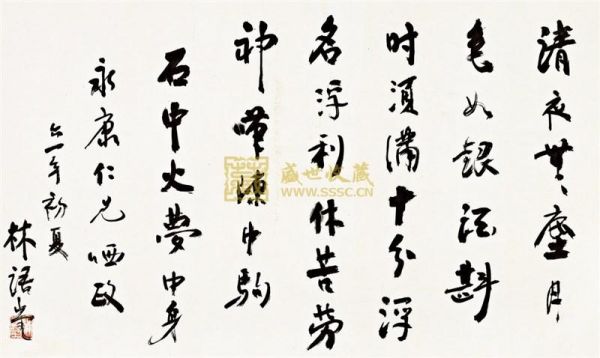 清夜無塵月
色如銀酒斟
时須滿十分浮
名浮利休苦劳
神嘆隙中駒
石中火夢中身
永康仁兄哂政
六一年初夏
林語堂
盛世收藏
WWW.SSSC.CN